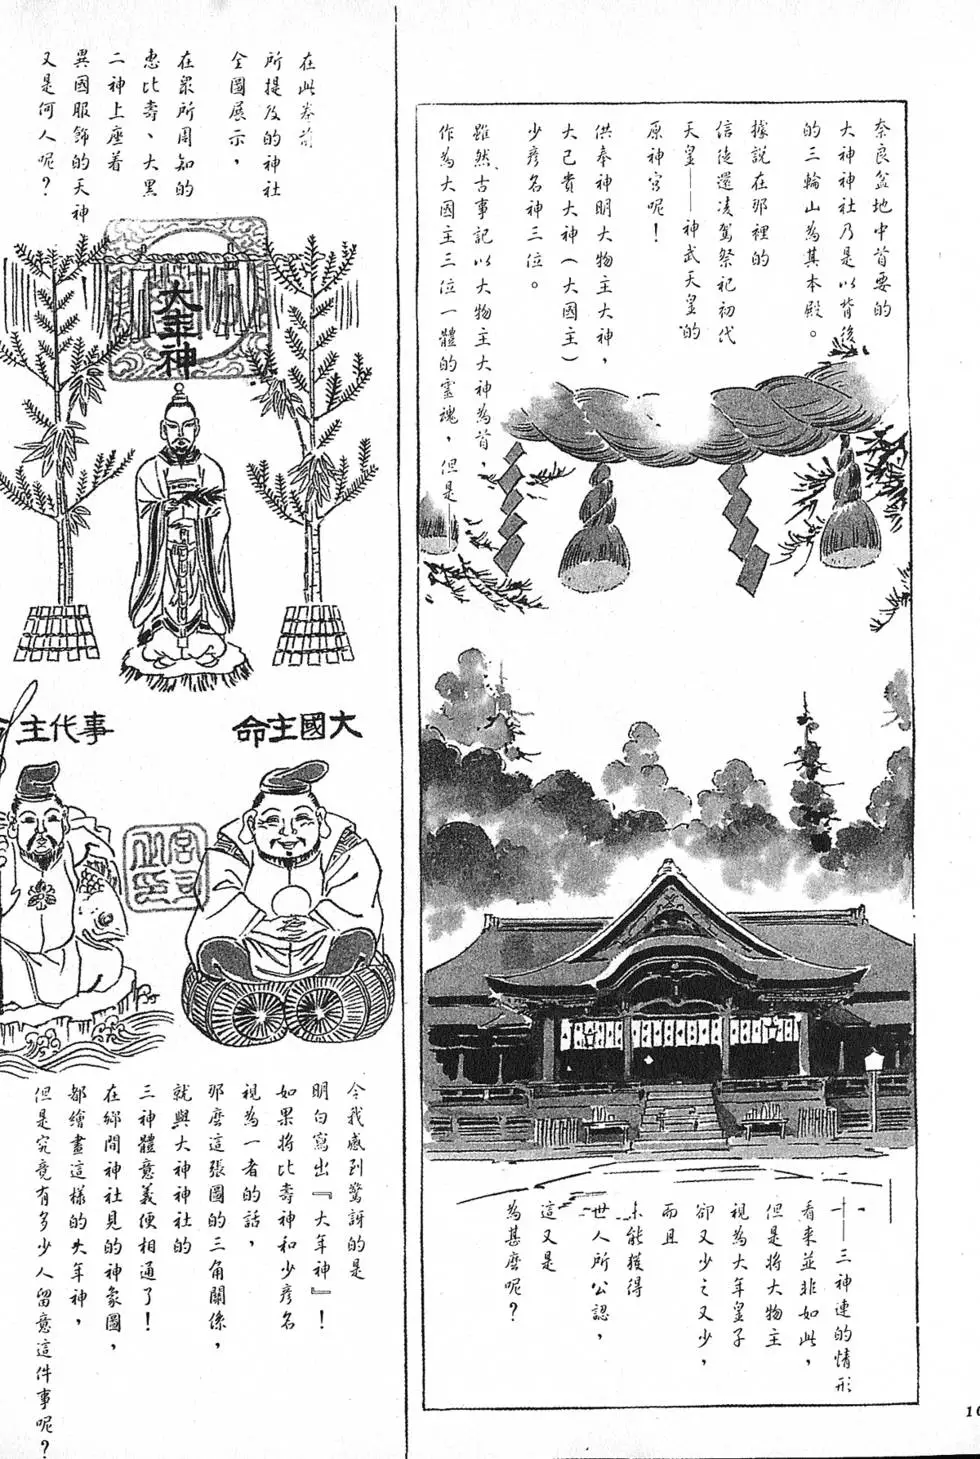 奈良盆地中首要的
大神神社乃是以背後
的三輪山為其本殿。
據說在那裡的
信徒還凌駕祭祀初代
天皇——神武天皇的
原神宮呢！
供奉神明大物主大神，
大己貴大神（大國主）
少彥名神三位。
雖然古事記以大物主大神為首，
作為大國主三位一體的靈魂，但是——
——三神連的情形
看來並非如此，
但是將大物主
視為大年皇子
卻又少之又少，
而且
未能獲得
世人所公認，
這又是
為甚麼呢？
16
在此卷前
所提及的神社
全圖展示，
在眾所周知的
惠比壽、大黑
二神上座着
異國服飾的天神
又是何人呢？
大年神
大國主命
事代主
宮司
之印
今我感到驚訝的是
明白寫出『大年神』！
如果將比壽神和少彥名
視為一者的話，
那麼這張圖的三角關係，
就與大神神社的
三神體意義便相通了！
在鄉間神社見的神象圖，
都繪畫這樣的大年神，
但是究竟有多少人留意這件事呢？